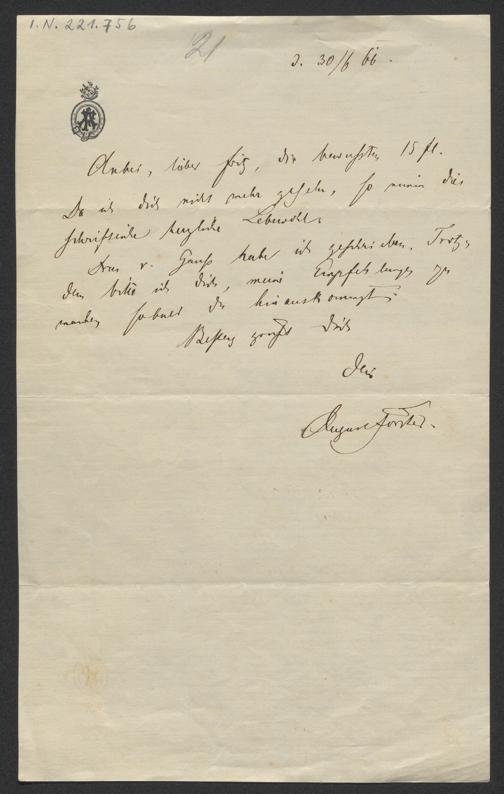 I.N. 221.756
21
d. 30/6 66.
Anbei, lieber Fritz, die bewussten 15 fl.
Da ich dich nicht mehr gesehen, so nimm dies
schriftliche herzliche Lebewohl.
Frau v. habe ich geschrieben. Trotz-
dem bitte ich dich, meine Empfehlungen zu
machen sobald du hinauskommst.
Bestens grüßt dich
Dein
August Förster.